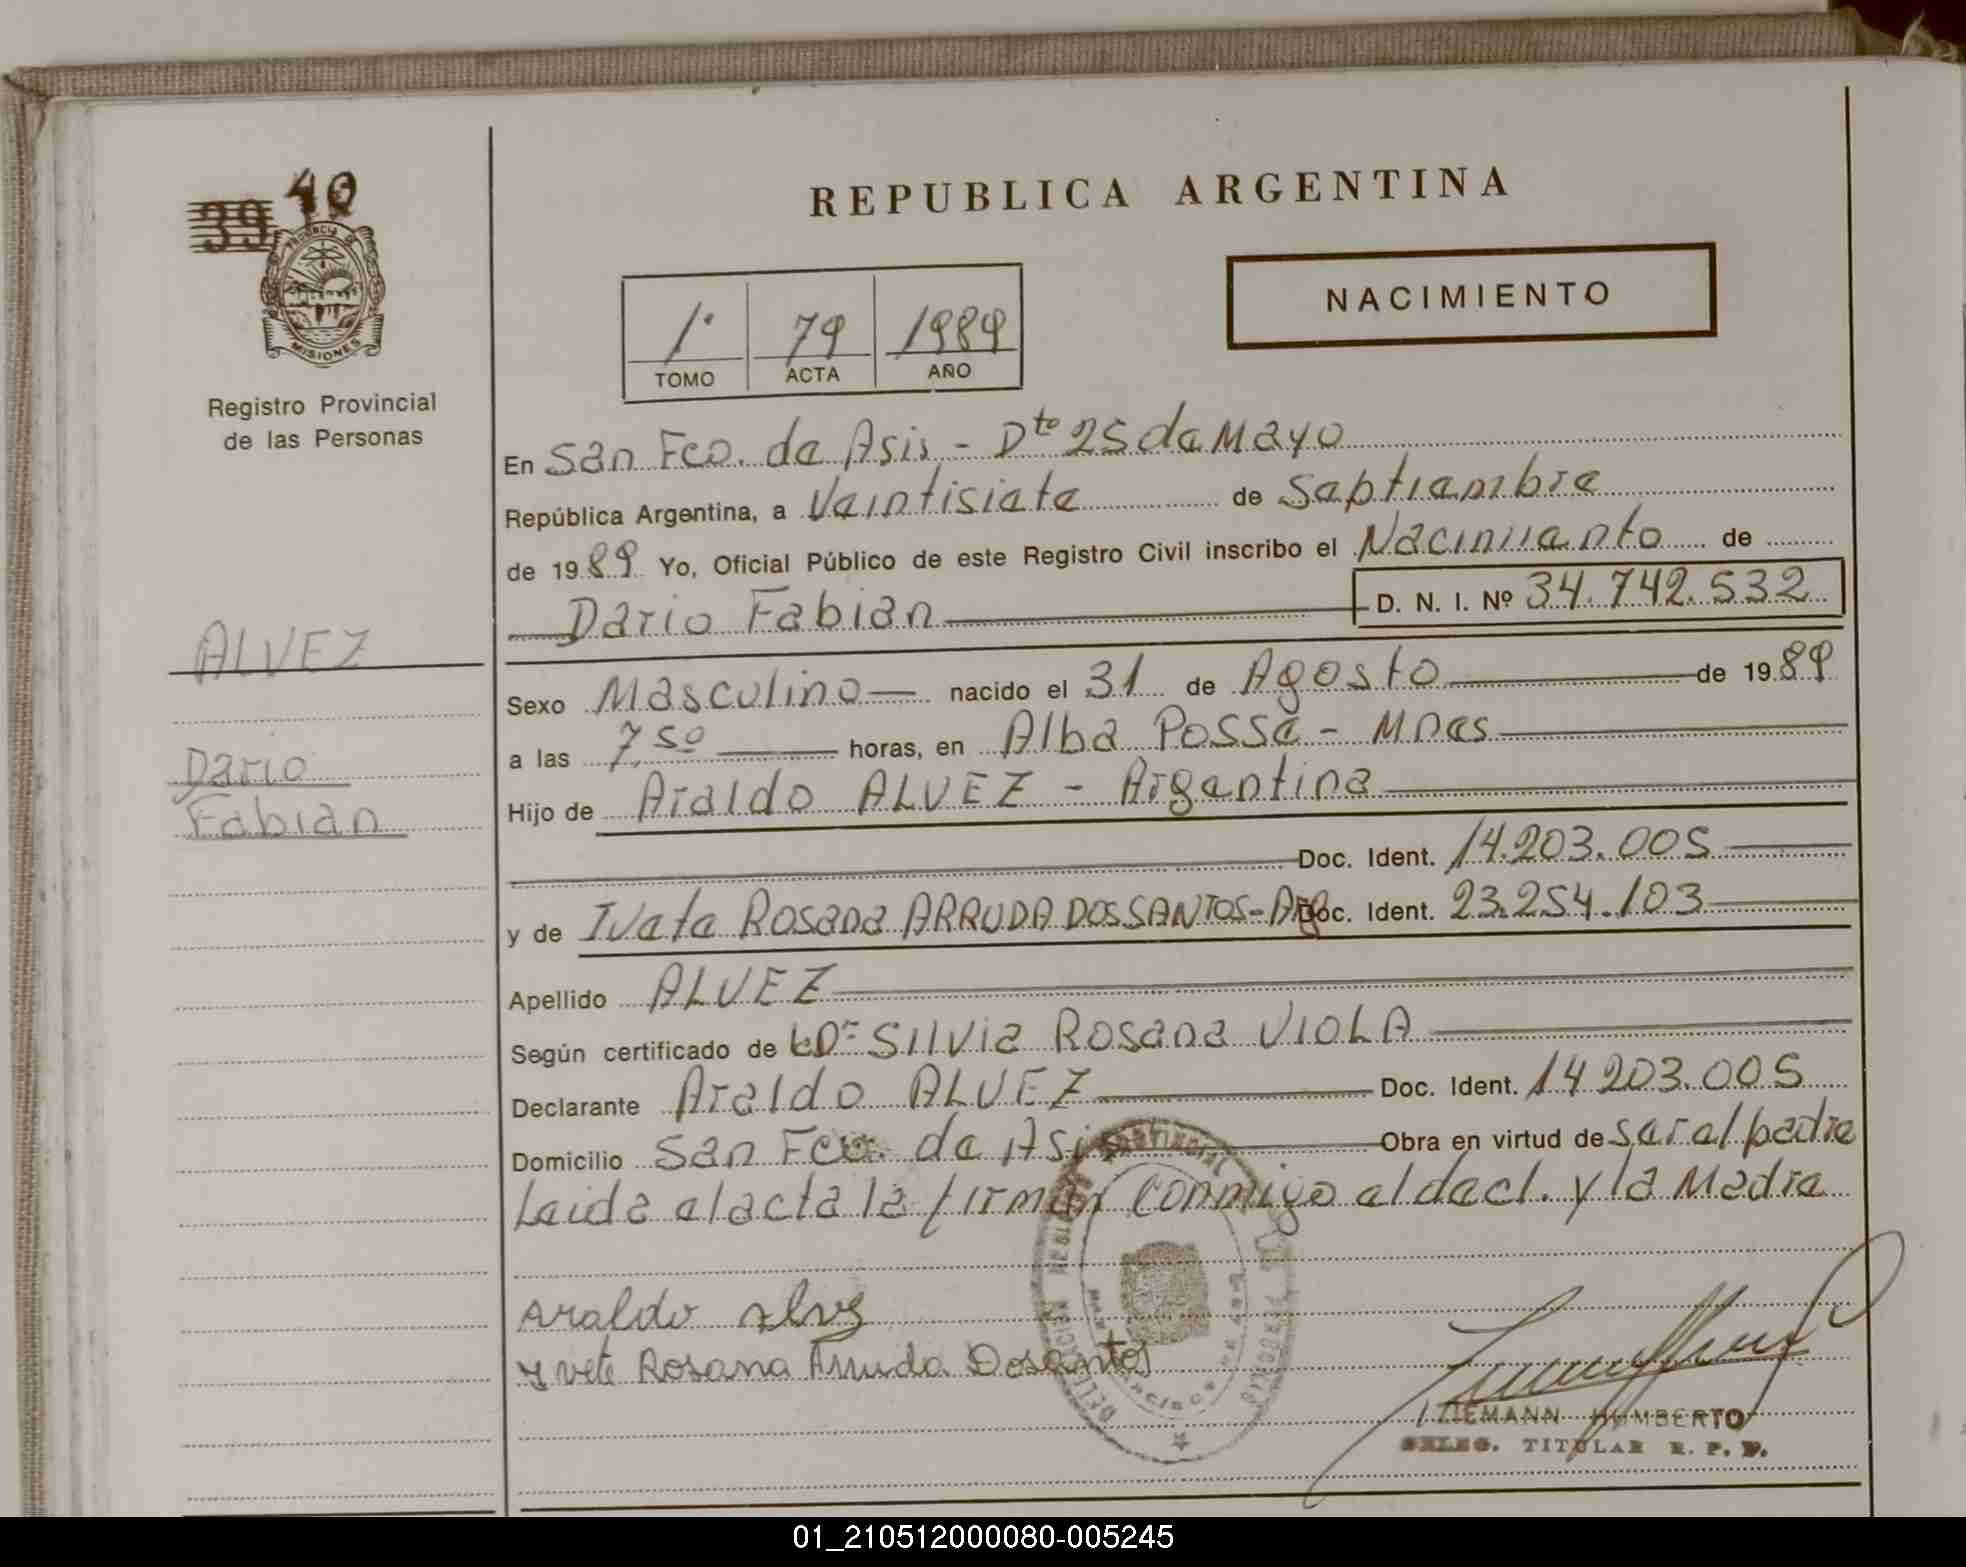 39 40
PROVINCIA DE
MISIONES
Registro Provincial
de las Personas
ALVEZ
Dario
Fabian
REPUBLICA ARGENTINA
NACIMIENTO
1º 79 1989
TOMO ACTA AÑO
En San Fco. de Asis - Dto 25 de Mayo
República Argentina, a Veintisiete de Septiembre
de 1989 Yo, Oficial Público de este Registro Civil inscribo el Nacimiento de
Dario Fabian D. N. I. Nº 34.742.532
Sexo Masculino nacido el 31 de Agosto de 1989
a las 7,50 horas, en Alba Posse - Mnes
Hijo de Araldo ALVEZ - Argentina
Doc. Ident. 14.203.005
y de Ivete Rosana ARRUDA DOS SANTOS - Arg Doc. Ident. 23.254.103
Apellido ALVEZ
Según certificado de Silvia Rosana VIOLA
Declarante Araldo ALVEZ Doc. Ident. 14 203.005
Domicilio San Fco. de Asis Obra en virtud de ser el padre
Leida el acta la firman conmigo el decl. y la Madre
Araldo alvez
Yvete Rosana Arruda Dosantos
ZIEMANN HUMBERTO
DELEG. TITULAR R. P. P.
01_210512000080-005245